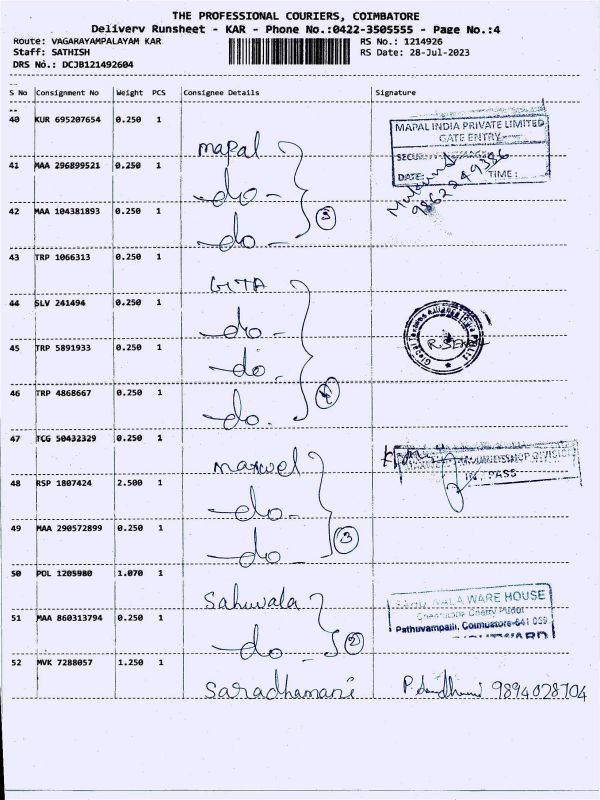 THE PROFESSIONAL COURIERS, COIMBATORE
Delivery Runsheet - KAR - Phone No.:0422-3505555 - Page No.:4
Route: VAGARAYAMPALAYAM KAR RS No.: 1214926
Staff: SATHISH RS Date: 28-Jul-2023
DRS No.: DCJB121492604
S No Consignment No Weight PCS Consignee Details Signature
40 KUR 695207654 0.250 1
mapal
MAPAL INDIA PRIVATE LIMITED
GATE ENTRY
41 MAA 296899521 0.250 1
-do-
DATE: TIME:
9862249386
42 MAA 104381893 0.250 1
-do- 3
43 TRP 1066313 0.250 1
GITA
44 SLV 241494 0.250 1
-do-
45 TRP 5891933 0.250 1
-do.
46 TRP 4868667 0.250 1
-do. 4
47 TCG 50432329 0.250 1
marwel
DIVISION
IN PASS
48 RSP 1807424 2.500 1
-do-
49 MAA 290572899 0.250 1
-do- 3
50 POL 1205980 1.070 1
Sahuwala
WARE HOUSE
Pathuvampalli, Coimbatore-641 059
51 MAA 860313794 0.250 1
-do- 2
52 MVK 7288057 1.250 1
Saradhamani 9894028704